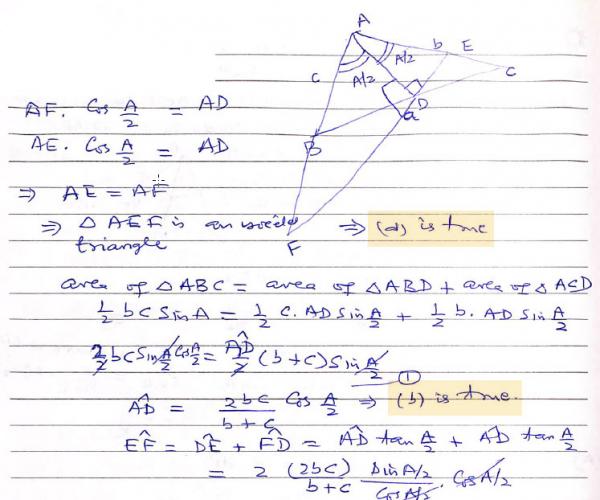 A
b E
A/2
c A/2 C
D
a
B
F
AF. Cos A/2 = AD
AE. Cos A/2 = AD
⇒ AE = AF
⇒ △ AEF is an
triangle ⇒ (d) is true
area of △ABC = area of △ABD + area of △ACD
1/2 bc SinA = 1/2 c. AD Sin A/2 + 1/2 b. AD Sin A/2
2/2 bc Sin A/2 Cos A/2 = AD/2 (b+c) Sin A/2 ①
AD = 2bc/(b+c) Cos A/2 ⇒ (b) is true.
EF = DE + FD = AD tan A/2 + AD tan A/2
= 2 (2bc)/(b+c) Sin A/2 / Cos A/2 . Cos A/2